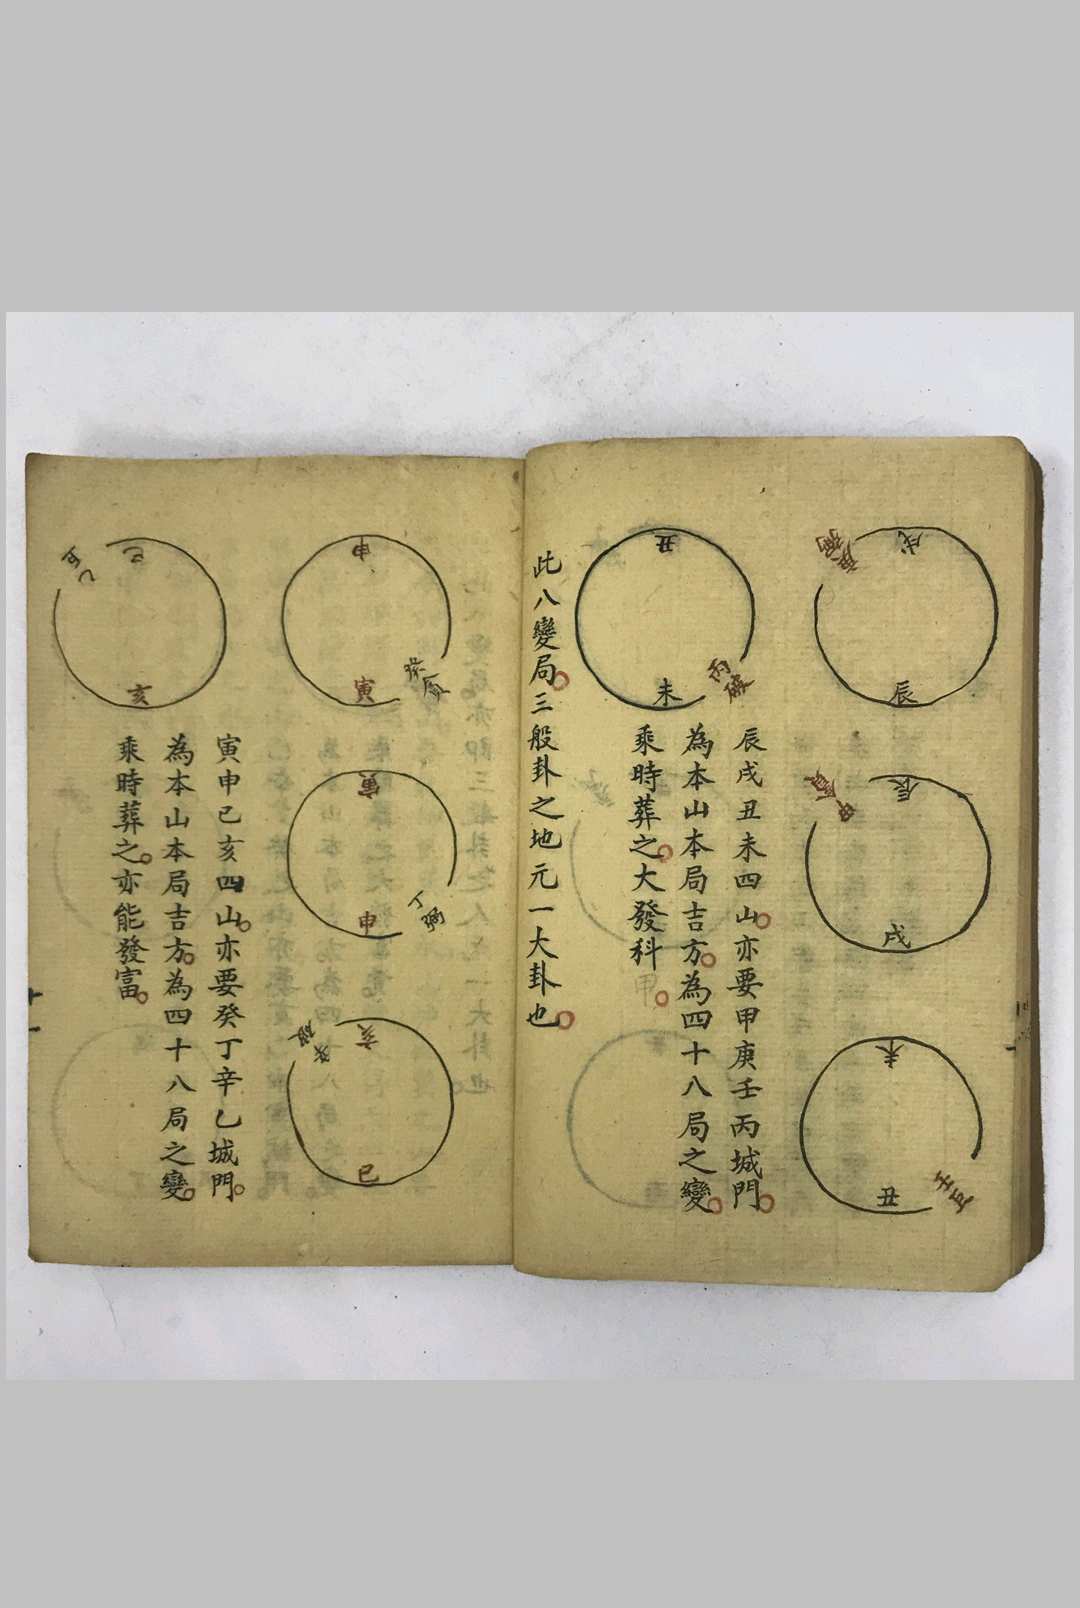 戌
庚
辰
辰
甲
戌
未
丑
壬
辰戌丑未四山亦要甲庚壬丙城門
為本山本局吉方為四十八局之變
乘時葬之大發科甲
丑
未
丙破
此八變局三般卦之地元一大卦也
申
寅
癸貪
寅
申
丁
亥
巳
寅申巳亥四山亦要癸丁辛乙城門
為本山本局吉方為四十八局之變
乘時葬之亦能發富
巳
亥
乙